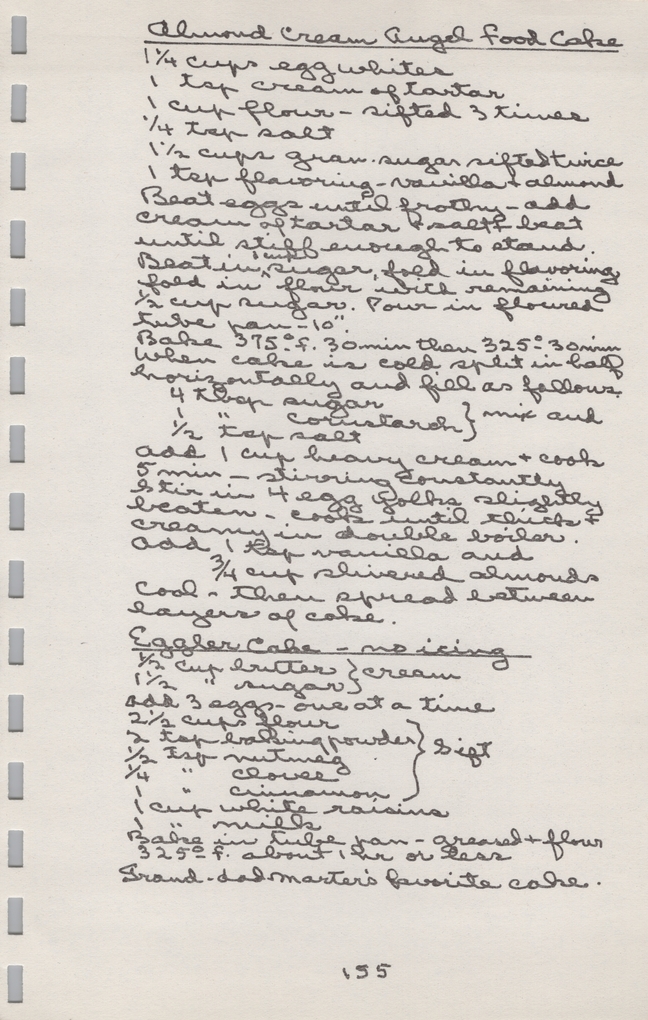 Almond Cream Angel Food Cake
1 1/4 cups egg whites
1 tsp cream of tartar
1 cup flour - sifted 3 times
1/4 tsp salt
1 1/2 cups gran. sugar sifted twice
1 tsp flavoring - vanilla + almond
Beat eggs until frothy - add
cream of tartar + salt & beat
until stiff enough to stand.
Beat in 1 cup sugar, fold in flavoring,
fold in flour with remaining
1/2 cup sugar. Pour in floured
tube pan - 10".
Bake 375° f. 30 min then 325° 30 min
When cake is cold split in half
horizontally and fill as follows.
4 tbsp sugar
1 " cornstarch } mix and
1/2 tsp salt
add 1 cup heavy cream + cook
5 min - stirring constantly
Stir in 4 egg yolks slightly
beaten - cook until thick +
creamy in double boiler.
add 1 tsp vanilla and
3/4 cup slivered almonds
Cool - then spread between
layers of cake.
Eggler Cake - no icing
1/2 cup butter } cream
1 1/2 " sugar }
add 3 eggs - one at a time
2 1/2 cups flour
2 tsp baking powder } Sift
1/2 tsp nutmeg
1/4 " cloves
1 " cinnamon
1 cup white raisins
1 " milk
Bake in tube pan - greased + flour
325° f. about 1 hr or less
Grand-dad Marter's favorite cake.
155